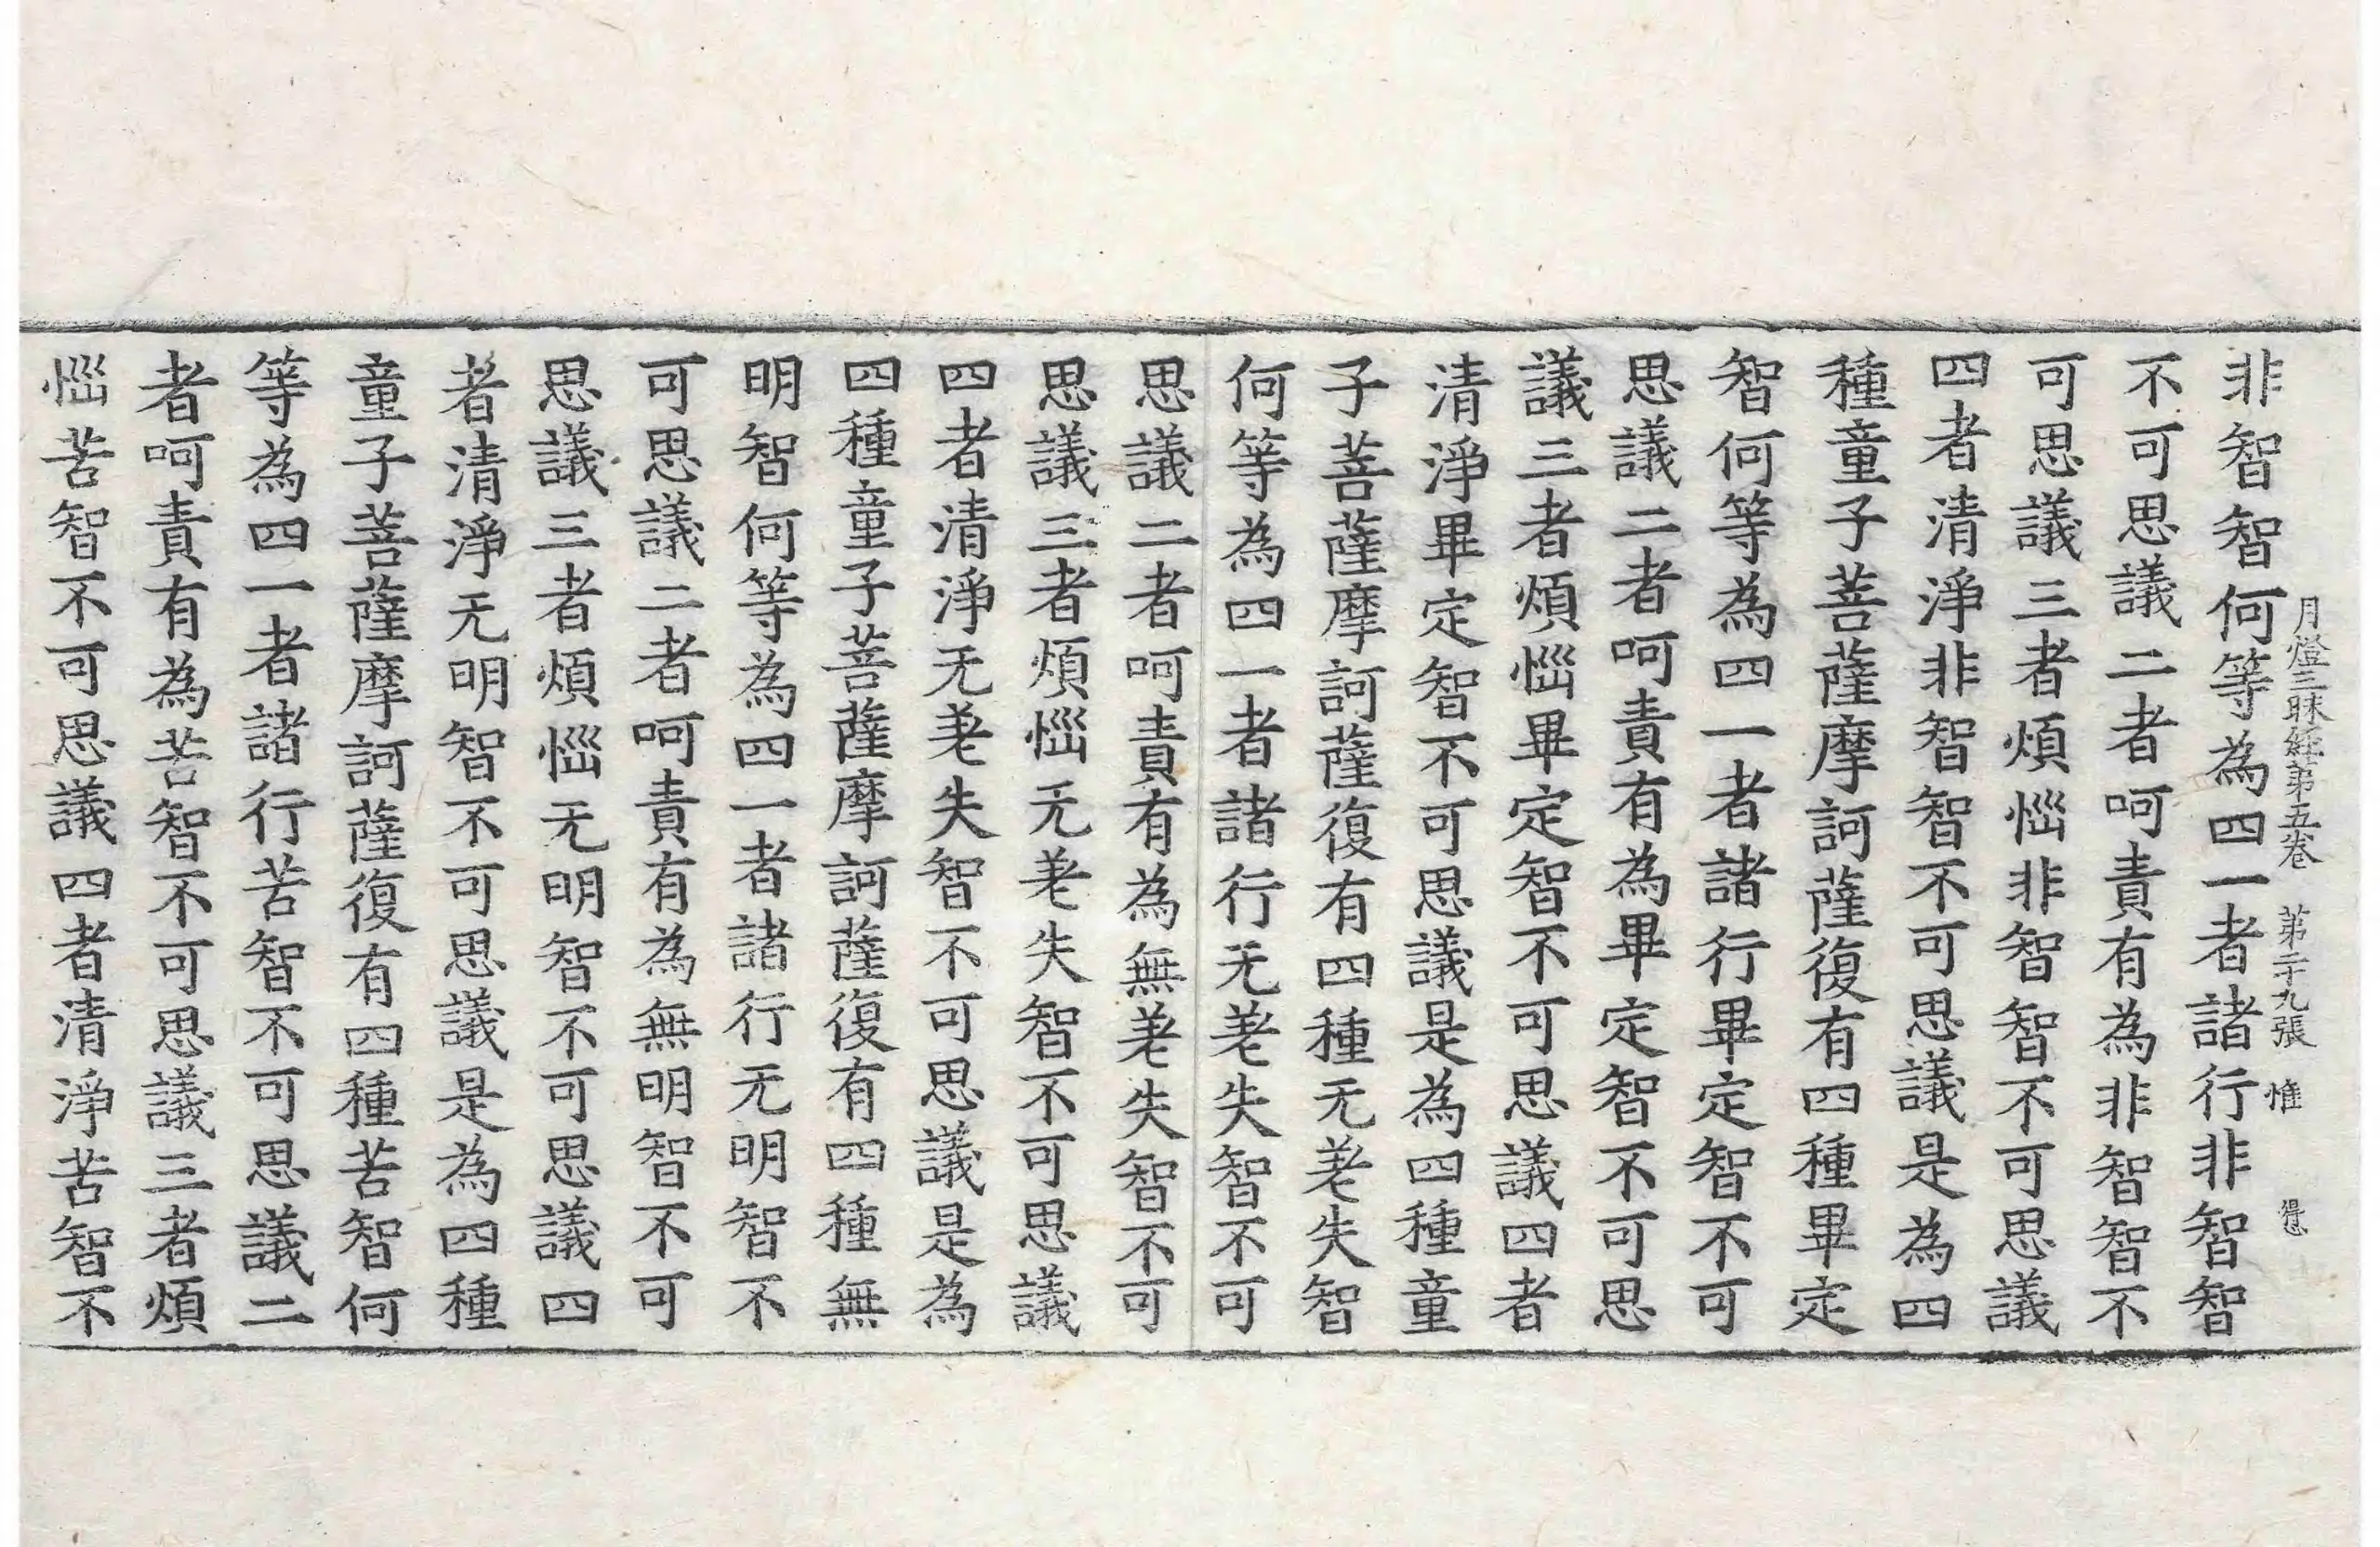 月燈三昧經第五卷　第二十九張　惟
非智智何等為四一者諸行非智智
不可思議二者呵責有為非智智不
可思議三者煩惱非智智不可思議
四者清淨非智智不可思議是為四
種童子菩薩摩訶薩復有四種畢定
智何等為四一者諸行畢定智不可
思議二者呵責有為畢定智不可思
議三者煩惱畢定智不可思議四者
清淨畢定智不可思議是為四種童
子菩薩摩訶薩復有四種无㓒失智
何等為四一者諸行无㓒失智不可
思議二者呵責有為無㓒失智不可
思議三者煩惱无㓒失智不可思議
四者清淨无㓒失智不可思議是為
四種童子菩薩摩訶薩復有四種無
明智何等為四一者諸行无明智不
可思議二者呵責有為無明智不可
思議三者煩惱无明智不可思議四
者清淨无明智不可思議是為四種
童子菩薩摩訶薩復有四種苦智何
等為四一者諸行苦智不可思議二
者呵責有為苦智不可思議三者煩
惱苦智不可思議四者清淨苦智不